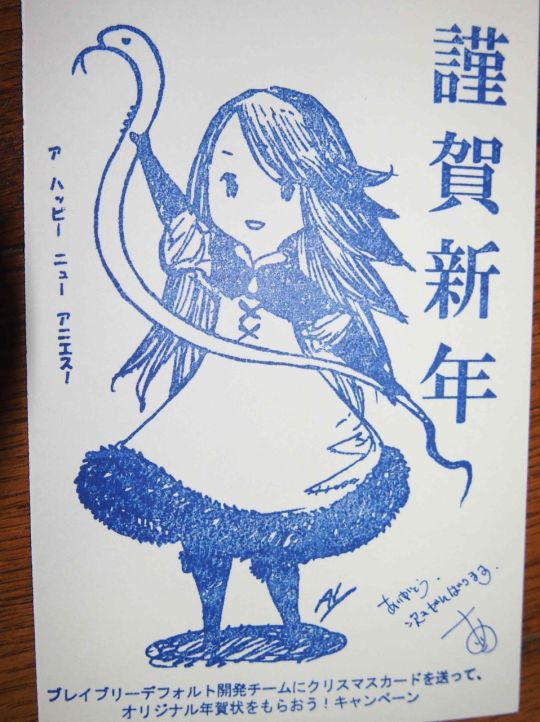 謹賀新年
ア ハッピー ニュー アニエス!
ありがとう.
次もがんばります.
ブレイブリーデフォルト開発チームにクリスマスカードを送って、
オリジナル年賀状をもらおう!キャンペーン